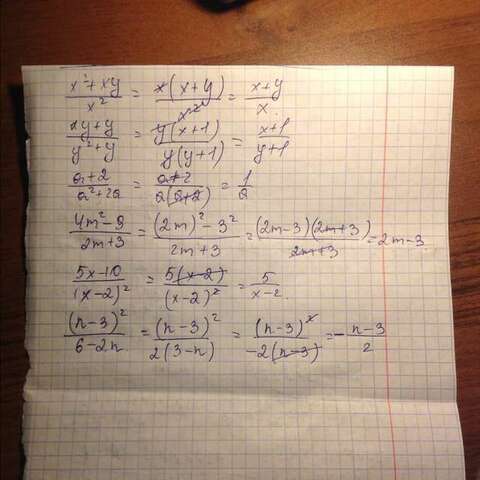 (x²+xy)/x² = x(x+y)/x² = (x+y)/x.
(xy+y)/(y²+y) = y(x+1)/(y(y+1)) = (x+1)/(y+1)
(a+2)/(a²+2a) = (a+2)/(a(a+2)) = 1/a
(4m²-9)/(2m+3) = ((2m)²-3²)/(2m+3) = (2m-3)(2m+3)/(2m+3) = 2m-3
(5x-10)/(x-2)² = 5(x-2)/(x-2)² = 5/(x-2.)
(n-3)²/(6-2n) = (n-3)²/(2(3-n)) = (n-3)²/(-2(n-3)) = -(n-3)/2